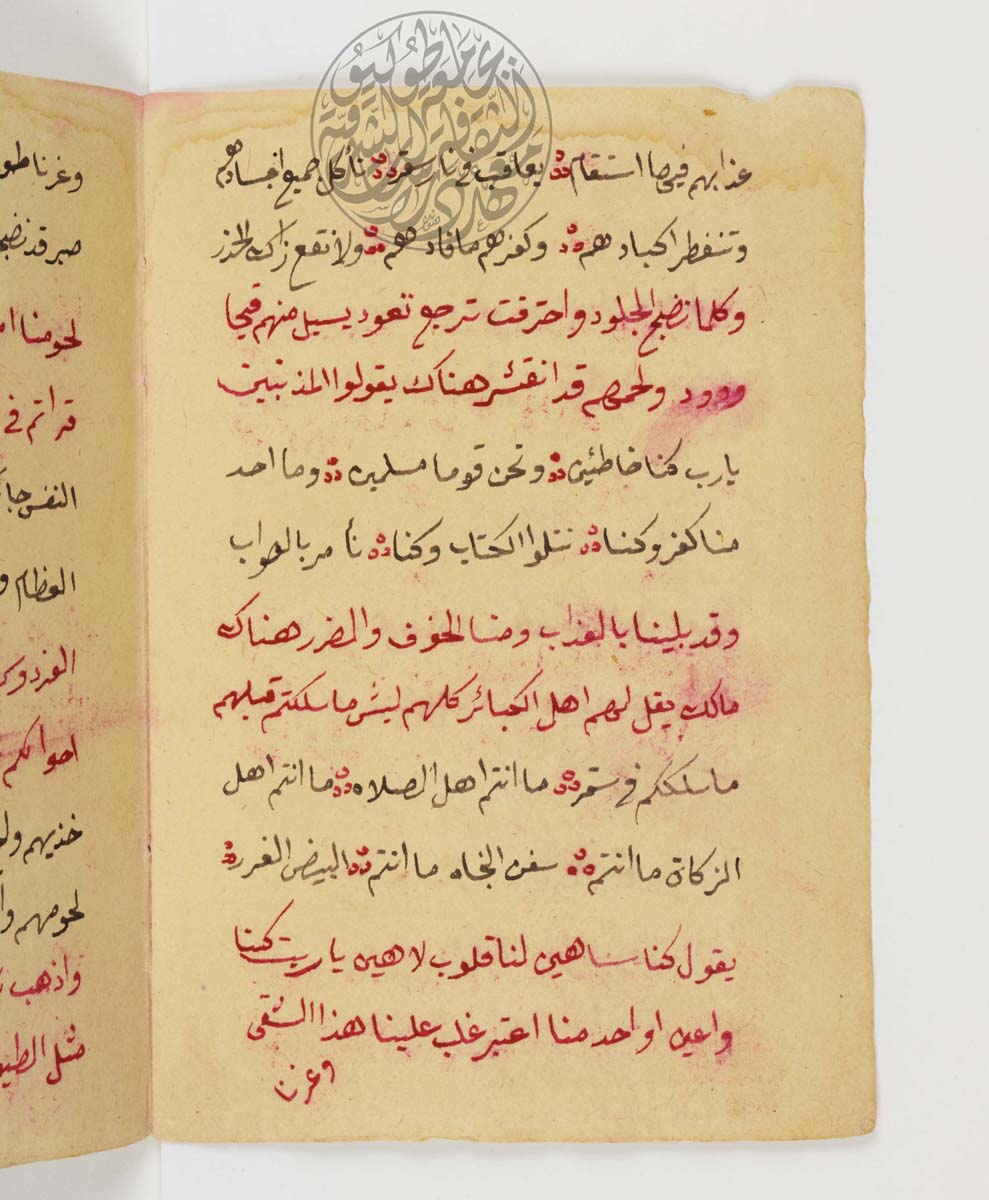 عذابهم فيها استقام يعاقب في نار سقر تأكل جميع اجسادهم
وتنفطر اكبادهم وكفرهم ما فادهم ولا نفع ذاك الحذر
وكلما نضج الجلود واحترقت ترجع تعود يسيل منهم قيحا
ودود ولحمهم قد انقشر هناك يقولوا المذنبين
يارب كنا خاطئين ونحن قوما مسلمين وما احد
منا كفر وكنا نتلوا الكتاب وكنا نأ مر بالصواب
وقد بلينا بالعذاب ومنا الخوف والضرر هناك
مالك يقل لهم اهل الكبائر كلهم ليش ما سلكتم قبلهم
ما سلككم في سقر ما انتم اهل الصلاه ما انتم اهل
الزكاة ما انتم سفن النجاه ما انتم البيض الغرر
يقول كنا ساهين لنا قلوب لاهين ياريت كنا
واعين او احد منا اعتبر غلب علينا هذا الشقى
وغرنا
وغرنا طو
صبر قد نضج
لحومنا ام
قراتم في
النفس جا
العظام و
الفردو
اخوانكم
خذيهم ول
لحومهم وا
واذهب
مثل الطيو